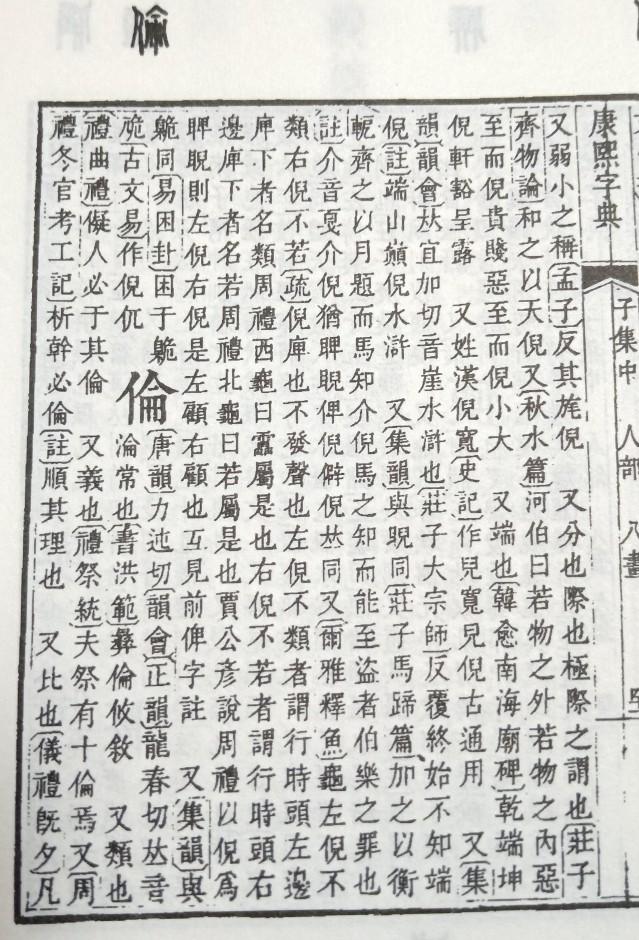 倫
康熙字典 子集中 人部 八畫
又弱小之稱孟子反其旄倪 又分也際也極際之謂也莊子
齊物論和之以天倪又秋水篇河伯曰若物之外若物之內惡
至而倪貴賤惡至而倪小大 又端也韓愈南海廟碑乾端坤
倪軒豁呈露 又姓漢倪寬史記作兒寬兒倪古通用 又集
韻韻會𠀤宜加切音崖水滸也莊子大宗師反覆終始不知端
倪註端山巔倪水滸 又集韻與睨同莊子馬蹄篇加之以衡
軛齊之以月題而馬知介倪馬之知而能至盜者伯樂之罪也
註介音戛介倪猶睥睨俾倪僻倪𠀤同又爾雅釋魚龜左倪不
類右倪不若疏倪庳也不發聲也左倪不類者謂行時頭左邊
庳下者名類周禮西龜曰靁屬是也右倪不若者謂行時頭右
邊庳下者名若周禮北龜曰若屬是也賈公彥說周禮以倪爲
睥睨則左倪右倪是左顧右顧也互見前俾字註 又集韻與
臲同易困卦困于臲
卼古文易作倪㐳
倫
唐韻力迍切韻會正韻龍春切𠀤音
淪常也書洪範彝倫攸敘 又類也
禮曲禮儗人必于其倫 又義也禮祭統夫祭有十倫焉又周
禮冬官考工記析幹必倫註順其理也 又比也儀禮旣夕凡